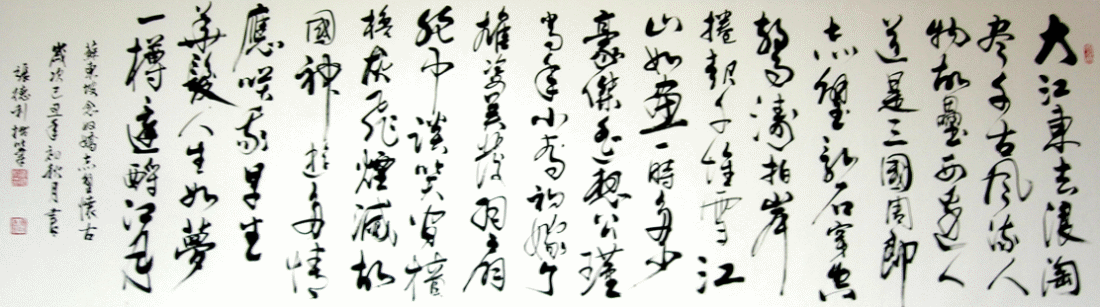 大江東去浪淘
尽千古风流人
物故壘西邊人
道是三國周郎
赤壁亂石穿空
驚濤拍岸
捲起千堆雪江
山如畫一時多少
豪傑遙想公瑾
當年小喬初嫁了
雄姿英發羽扇
綸巾談笑間檣
櫓灰飛煙滅故
國神遊多情
應笑我早生
華髮人生如夢
一樽還酹江月
蘇東坡念奴嬌赤壁懷古
歲次己丑年初秋月書
張德利